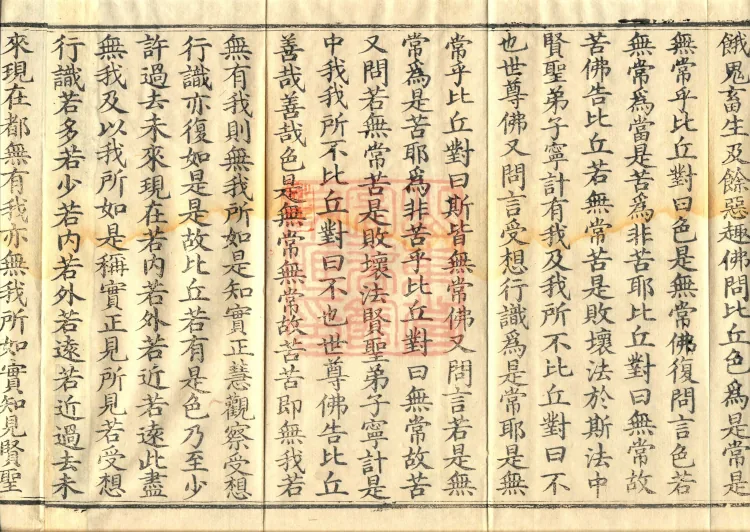 餓鬼畜生及餘惡趣佛問比丘色為是常是
無常乎比丘對曰色是無常佛復問言色若
無常為當是苦為非苦耶比丘對曰無常故
苦佛告比丘若無常苦是敗壞法於斯法中
賢聖弟子寧計有我及我所不比丘對曰不
也世尊佛又問言受想行識為是常耶是無
常乎比丘對曰斯皆無常佛又問言若是無
常為是苦耶為非苦乎比丘對曰無常故苦
又問若無常苦是敗壞法賢聖弟子寧計是
中我我所不比丘對曰不也世尊佛告比丘
善哉善哉色是無常無常故苦苦即無我若
無有我則無我所如是知實正慧觀察受想
行識亦復如是是故比丘若有是色乃至少
許過去未來現在若內若外若近若遠此盡
無我及以我所如是稱實正見所見若受想
行識若多若少若內若外若遠若近過去未
來現在都無有我亦無我所如實知見賢聖